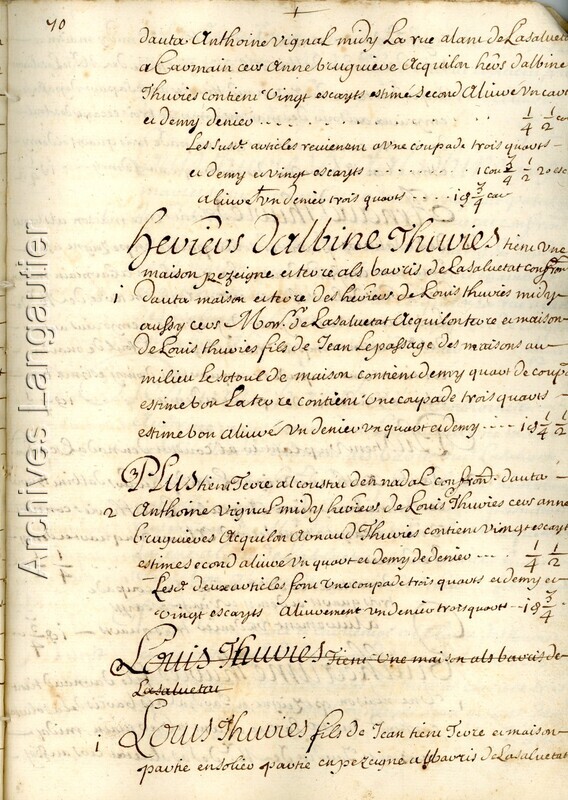 70
dauta Anthoine Vignal midy La rue alant de Lasaluetat
a Caormain cers Anne bruguieres Acquilon hers dalbine
Thuries contient Vingt escayts estimé second Aliuré Un cart
et demy denier . . . . . . 1/4 1/2
Les susd. articles revienent a Une coupade trois quarts
et demy et vingt escayts . . . . . . 1 cou 3/4 1/2 20 esc
aliuré Un denier trois quarts . . . . 1 d 3/4
Heritiers Dalbine Thuries tient Une
maison pezeigne et terre als barris de Lasaluetat confron
1 dauta maison et terre des heritiers de Louis Thuries midy
aussy cers Monsr. de Lasaluetat Acquilon terre et maison
de Louis Thuries fils de Jean Le passage des maisons au
milieu Le sotoul de maison contient demy quart de coupade
estime bon La terre contient Une coupade trois quarts
estime bon aliuré Un denier Un quart et demy . . . 1 d 1/4 1/2
Plus tient Terre al coustou den nadal confron. dauta
2 Anthoine Vignal midy heritiers de Louis Thuries cers anne
bruguieres Acquilon Arnaud Thuries contient Vingt escayts
estime second aliuré Un quart et demy de denier . . . 1/4 1/2
Lesd. deux articles font Une coupade trois quarts et demy et
Vingt escayts Aliurement Un denier trois quarts . . 1 d 3/4
Louis Thuries Tient Une maison als barris de
Lasaluetat
Louis Thuries fils de Jean tient Terre et maison
1 partie en solier partie en pezeigne als barris de Lasaluetat
Archives Langautier